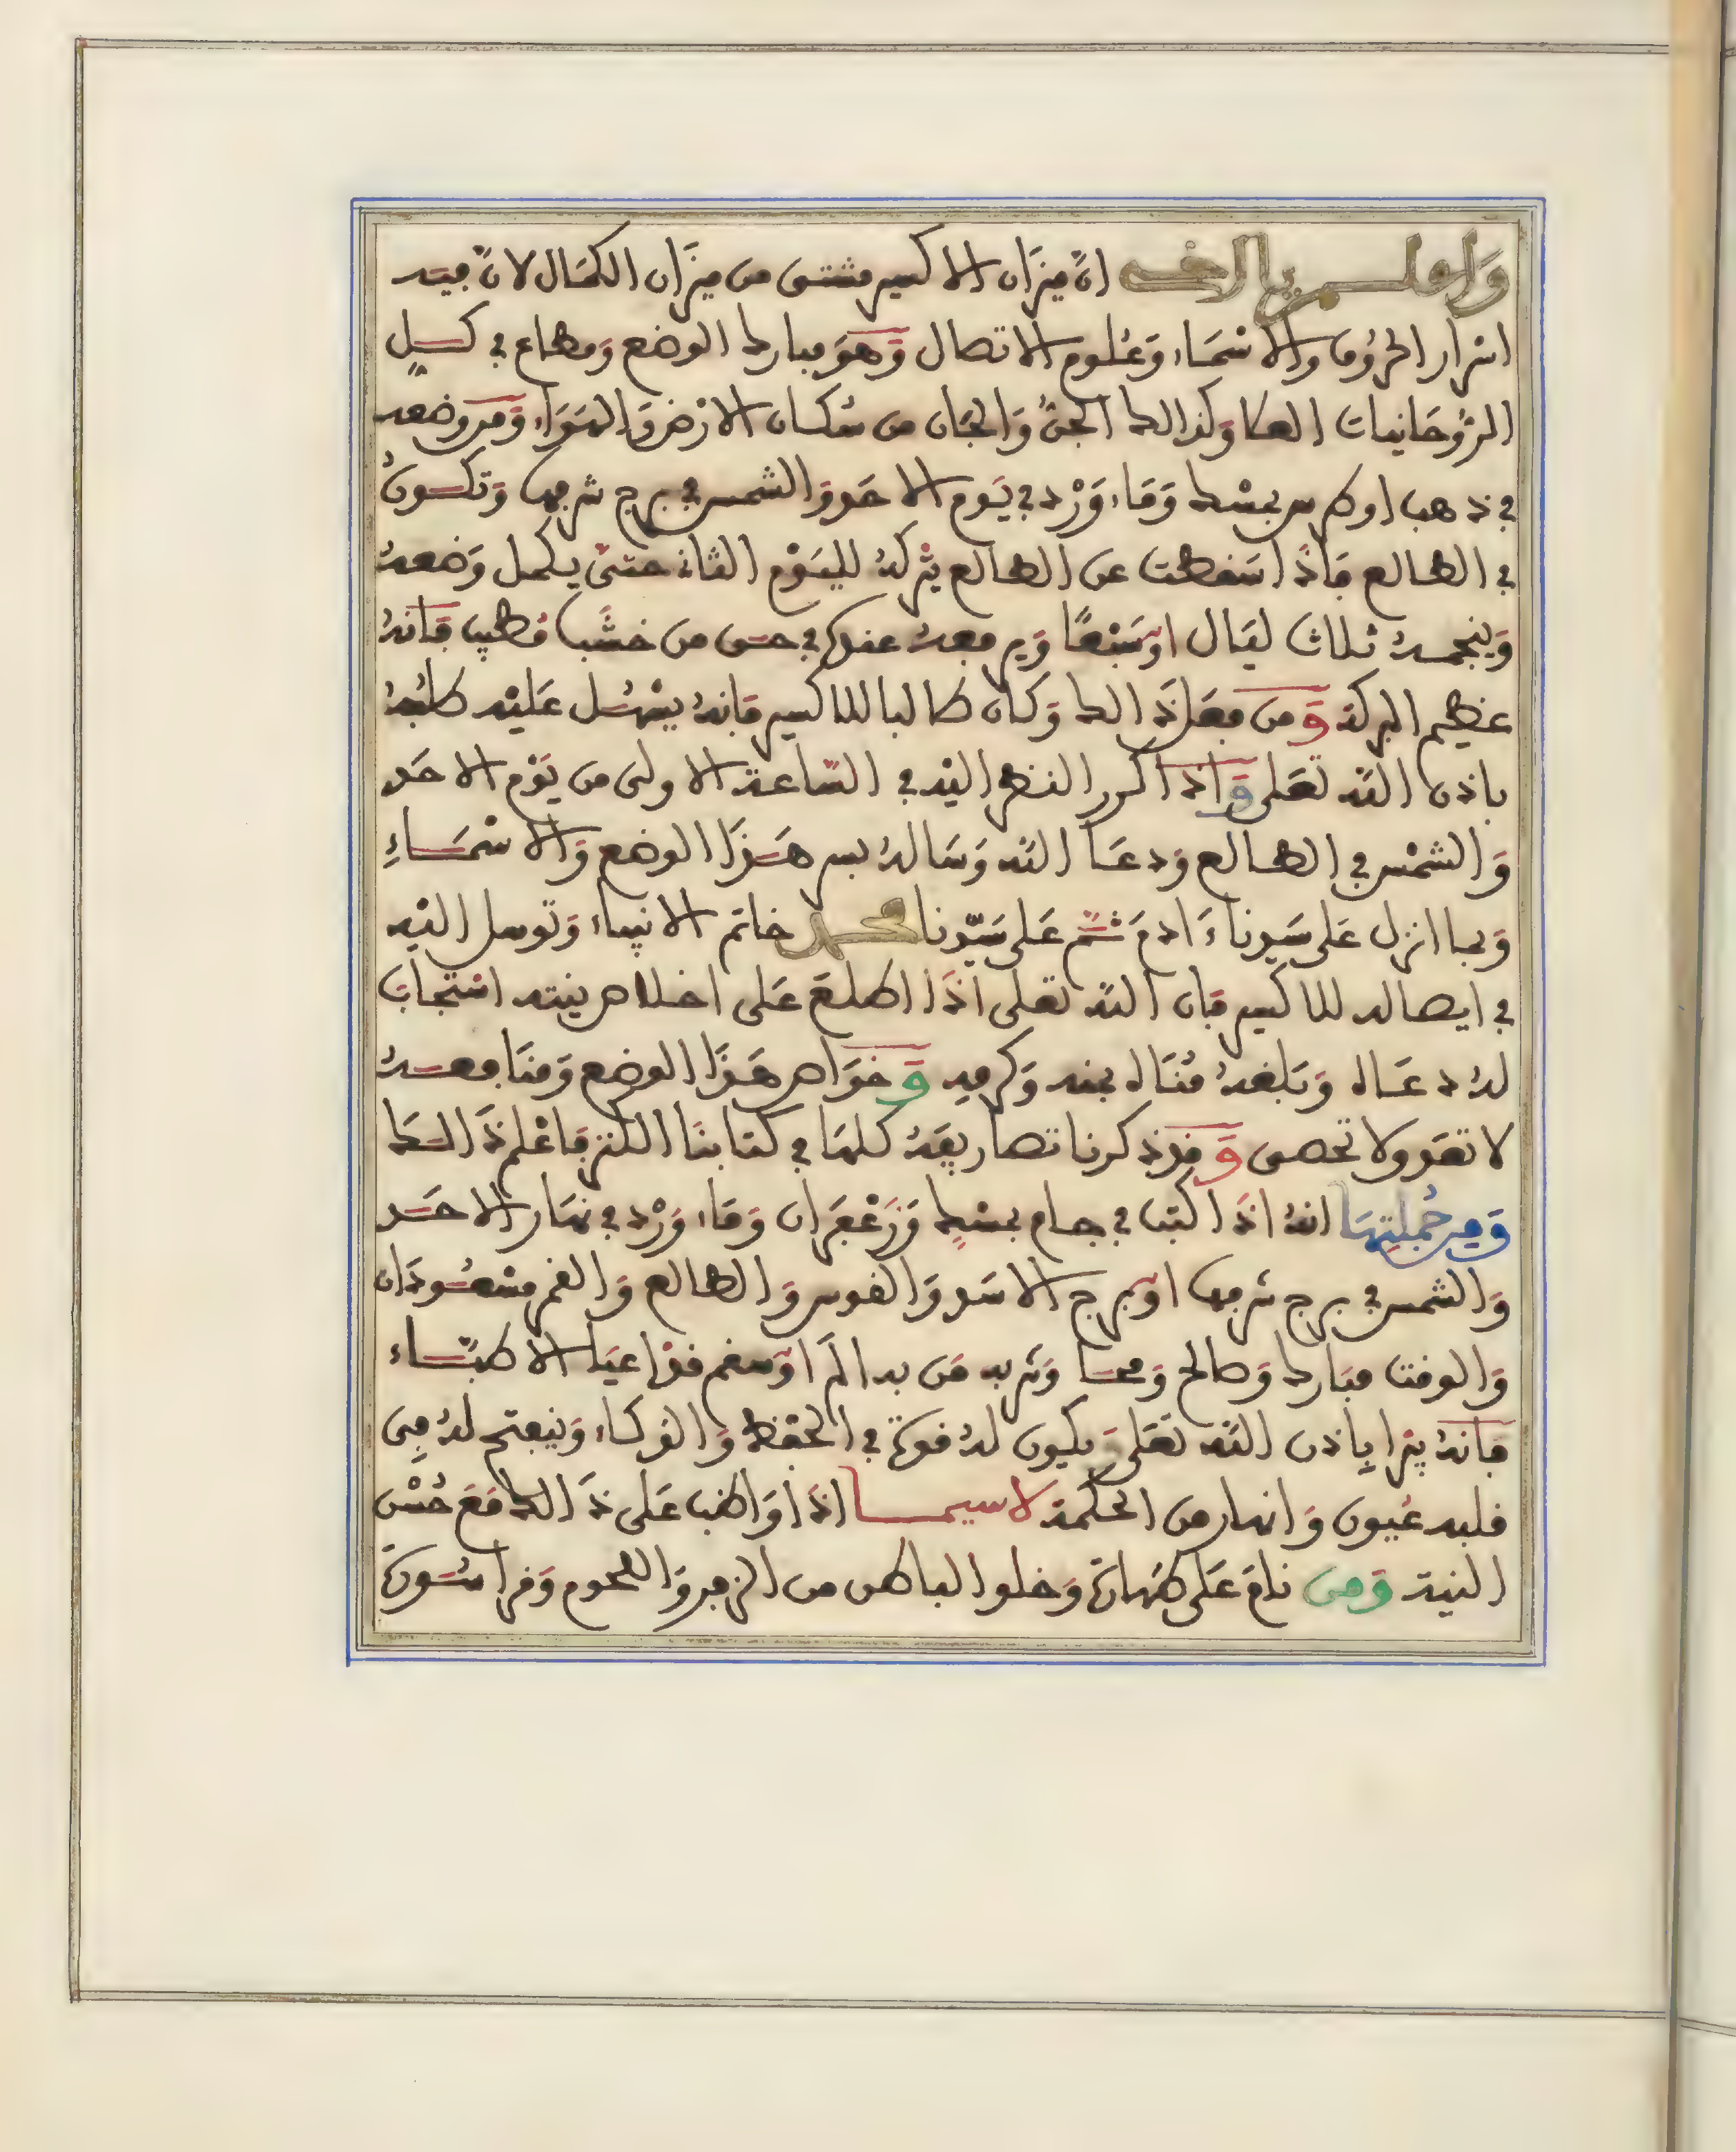 وَاعلم يا اخي انّ ميزَان الاكسير مشتق من ميزَان الكمَال لانّ فيه
اسْرار الحرُوف والاسْمَاء وَعُلوم الاتصال وَهوَ مبارك الوضع وَمطاع في كل
الرُّوحَانيات العلا وَكذالك الجنّ وَالجَان من سُكان الارْض وَالهَوَاء وَمن وضعه
في ذهب او كرسي بمسْك وَمَاء وَرْد في يَوم الاحَد وَالشمس في برج شرفها وَتكونُ
في الطالع فَاذَا سَقطت عن الطالع يتْركهُ لليَوْم الثاني حتىّ يكمل وَضعهُ
وَينجمهُ ثلاث ليَال اوْ سَبْعًا وَيرفعهُ عنده في حق من خشَب مُطيب فَانهُ
عظيم البركة وَمن فعَل ذَالك وَكان طالبا للاكسير فَانهُ يسْهُل عَليْه طلبُهُ
باذن الله تعَلى وَاذا كرر النظر اليْه في السَّاعة الاولى من يَوْم الاحَد
وَالشمْس في الطالع وَدعَا الله وَسَالهُ بسر هَذَا الوضع وَالاسْمَاءِ
وَبما انزل عَلى سَيدنا ءَادمَ ثُمّ عَلى سَيّدنا محمد خاتم الانبياء وَتوسل اليْه
في ايصاله للاكسير فَان الله تعَلى اذَا اطلعَ عَلى اخلاص نيته اسْتجابَ
لهُ دعَاه وَبَلغهُ مُنَاه بمنه وَكرمه وَخوَاص هَذَا الوضع وَمنَافعهُ
لا تعَد ولا تحصى وَقد ذكرنا تصَاريفهُ كلهَا في كتابنَا الكنز فَاعْلم ذَالك
وَمِن جُملتِهَا انهُ اذَا كتب في جام بمسْكٍ وَزَعْفَران وَمَاء وَرْد في نهَار الاحَد
وَالشمس في برج شرفها اوْ برج الاسَد وَالقوس وَالطالع وَالقمر مسْعُودَان
وَالوقت مبَارك وَصالح وَمحا وَشربه مَن به الَم اوْ سقم قدْ اعيَا الاطبّاء
فانهُ يبرا باذن الله تعَلى وَيكون لهُ قوة في الحفظ وَالذكاء وَينفتح لهُ مِن
قلبه عُيون وَانهار من الحكمة لاسيما اذَا وَاظب عَلى ذَالك مَعَ حُسْن
النية وَمن نامَ عَلى طهَارة وَخلو الباطن من الزفر وَاللحوم وَقرا سُورة